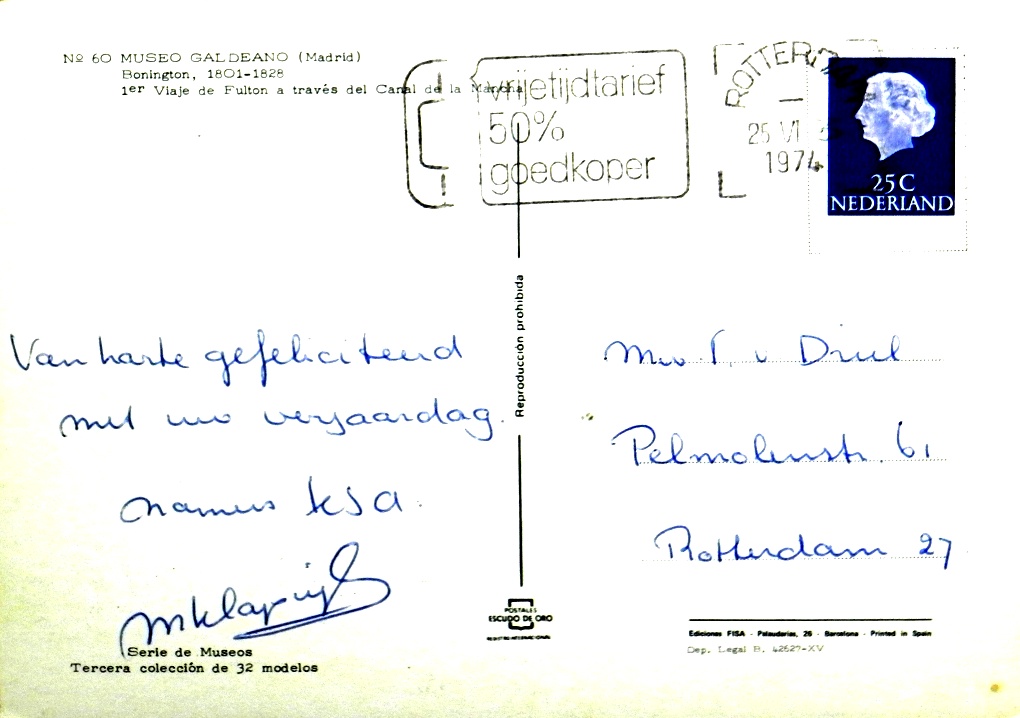 Nº 60 MUSEO GALDEANO (Madrid)
Bonington, 1801-1828
1er Viaje de Fulton a través del Canal de la Mancha
vrijetijdtarief
50%
goedkoper
ROTTERD
25 VI
1974
25 C
NEDERLAND
Van harte gefeliciteerd
met uw verjaardag.
namens KSA.
Serie de Museos
Tercera colección de 32 modelos
Reproducción prohibida
POSTALES
ESCUDO DE ORO
Mw v Driel
Pelmolenstr. 61
Rotterdam 27
Ediciones FISA - Palaudarias, 26 - Barcelona - Printed in Spain
Dep. Legal B. 42627-XV